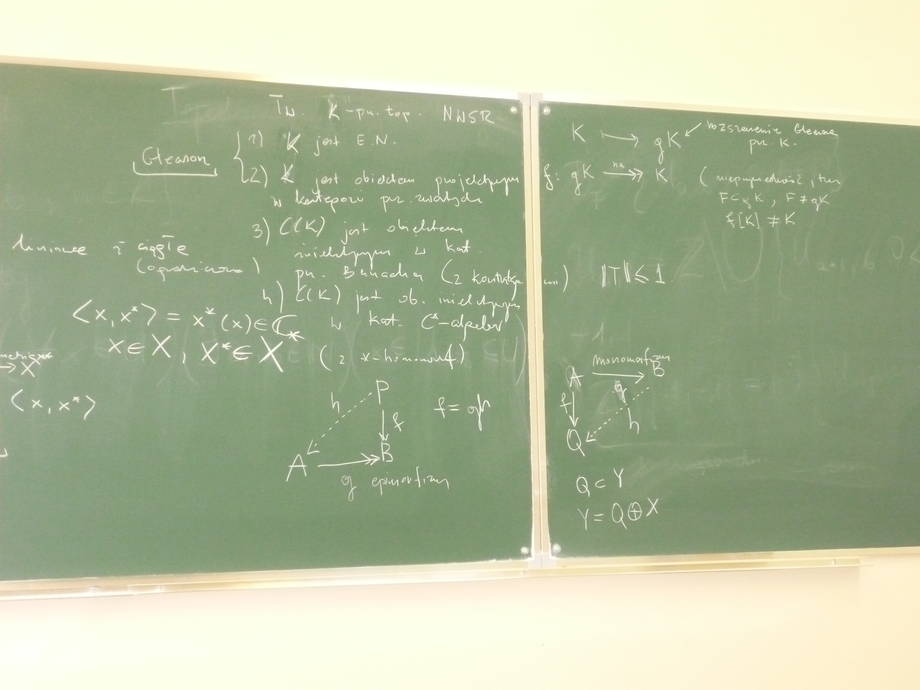 Tw. K - pn. top. NWSR
Gleason
1) K jest E.N.
2) K jest obiektem projektywnym
w kategorii pn. zwartych
3) C(K) jest obiektem
injektywnym w kat.
pn. Banacha (z
4) C(K) jest ob. injektywnym
w kat. C*-algebr
(z *-homomorf)
liniowe i ciągłe
(ograniczone)
<x, x*> = x*(x) ∈ C
x ∈ X, x* ∈ X*
→ X*
<x, x*>
P
h
f
f = gh
A
B
g epimorfizm
K → gK
rozszerzenie Gleasona
pn. K.
f: gK ↠ K
na
F ⊂ gK, F ≠ gK
f[K] ≠ K
||T|| ≤ 1
monomorfizm
A → B
g
f
h
Q
Q ⊂ Y
Y = Q ⊕ X